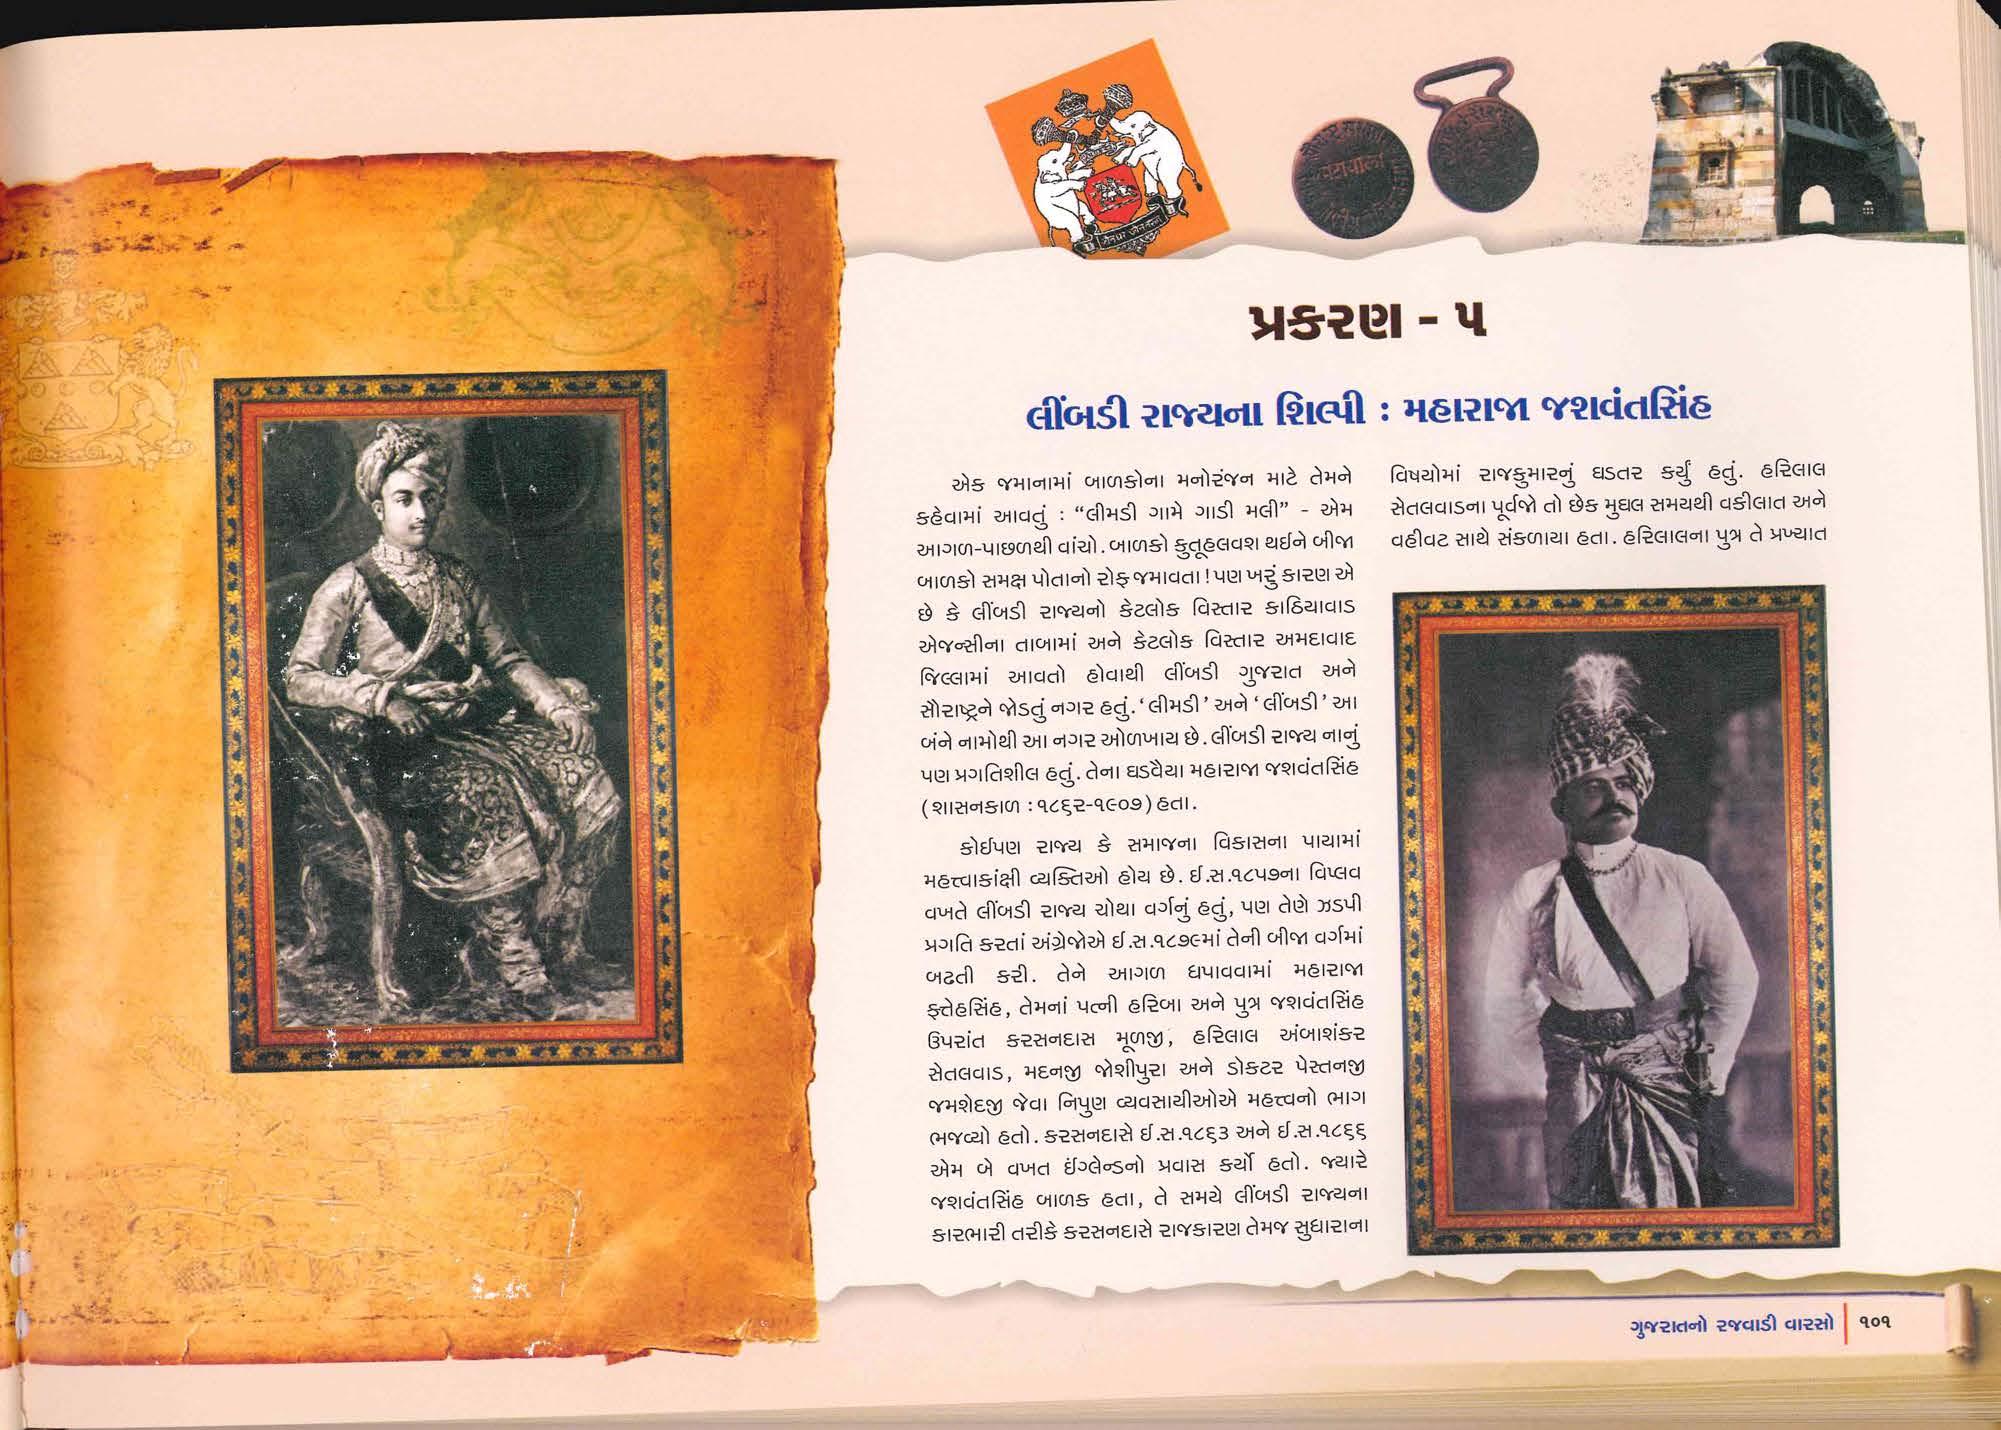 પ્રકરણ - ૫
લીંબડી રાજ્યના શિલ્પી : મહારાજા જશવંતસિંહ
એક જમાનામાં બાળકોના મનોરંજન માટે તેમને
કહેવામાં આવતું : “લીમડી ગામે ગાડી મલી” - એમ
આગળ-પાછળથી વાંચો. બાળકો કુતૂહલવશ થઈને બીજા
બાળકો સમક્ષ પોતાનો રોફ જમાવતા! પણ ખરું કારણ એ
છે કે લીંબડી રાજ્યનો કેટલોક વિસ્તાર કાઠિયાવાડ
એજન્સીના તાબામાં અને કેટલોક વિસ્તાર અમદાવાદ
જિલ્લામાં આવતો હોવાથી લીંબડી ગુજરાત અને
સૌરાષ્ટ્રને જોડતું નગર હતું. ‘લીમડી’ અને ‘લીંબડી’ આ
બંને નામોથી આ નગર ઓળખાય છે. લીંબડી રાજ્ય નાનું
પણ પ્રગતિશીલ હતું. તેના ઘડવૈયા મહારાજા જશવંતસિંહ
(શાસનકાળ : ૧૮૬૨-૧૯૦૭) હતા.
કોઈપણ રાજ્ય કે સમાજના વિકાસના પાયામાં
મહત્ત્વાકાંક્ષી વ્યક્તિઓ હોય છે. ઈ.સ.૧૮૫૭ના વિપ્લવ
વખતે લીંબડી રાજ્ય ચોથા વર્ગનું હતું, પણ તેણે ઝડપી
પ્રગતિ કરતાં અંગ્રેજોએ ઈ.સ.૧૮૭૯માં તેની બીજા વર્ગમાં
બઢતી કરી. તેને આગળ ધપાવવામાં મહારાજા
ફતેહસિંહ, તેમનાં પત્ની હરિબા અને પુત્ર જશવંતસિંહ
ઉપરાંત કરસનદાસ મૂળજી, હરિલાલ અંબાશંકર
સેતલવાડ, મદનજી જોશીપુરા અને ડોકટર પેસ્તનજી
જમશેદજી જેવા નિપુણ વ્યવસાયીઓએ મહત્ત્વનો ભાગ
ભજવ્યો હતો. કરસનદાસે ઈ.સ.૧૮૬૩ અને ઈ.સ.૧૮૬૬
એમ બે વખત ઈંગ્લેન્ડનો પ્રવાસ કર્યો હતો. જ્યારે
જશવંતસિંહ બાળક હતા, તે સમયે લીંબડી રાજ્યના
કારભારી તરીકે કરસનદાસે રાજકારણ તેમજ સુધારાના
વિષયોમાં રાજકુમારનું ઘડતર કર્યું હતું. હરિલાલ
સેતલવાડના પૂર્વજો તો છેક મુઘલ સમયથી વકીલાત અને
વહીવટ સાથે સંકળાયા હતા. હરિલાલના પુત્ર તે પ્રખ્યાત
ગુજરાતનો રજવાડી વારસો | ૧૦૧